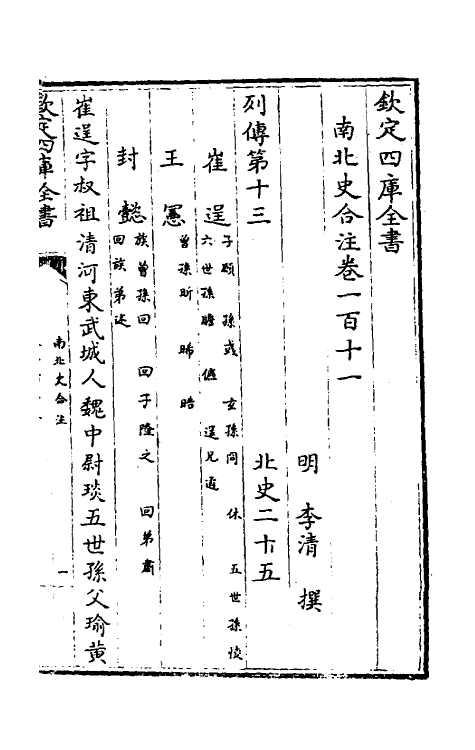 欽定四庫全書
南北史合注卷一百十一
明 李清 撰
列傳第十三
北史二十五
崔逞 子頤 孫彧 玄孫冏 休 五世孫㥄
六世孫瞻 儦 逞兄遹
王憲 曾孫昕 晞 晧
封懿 族曾孫回 回子隆之 回弟肅
回族弟述
崔逞字叔祖清河東武城人魏中尉琰五世孫父瑜黃
欽定四庫全書
南北史合注
一